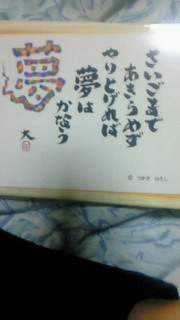 さいごまで
あきらめず
やりとげれば
夢は
かなう
大
夢